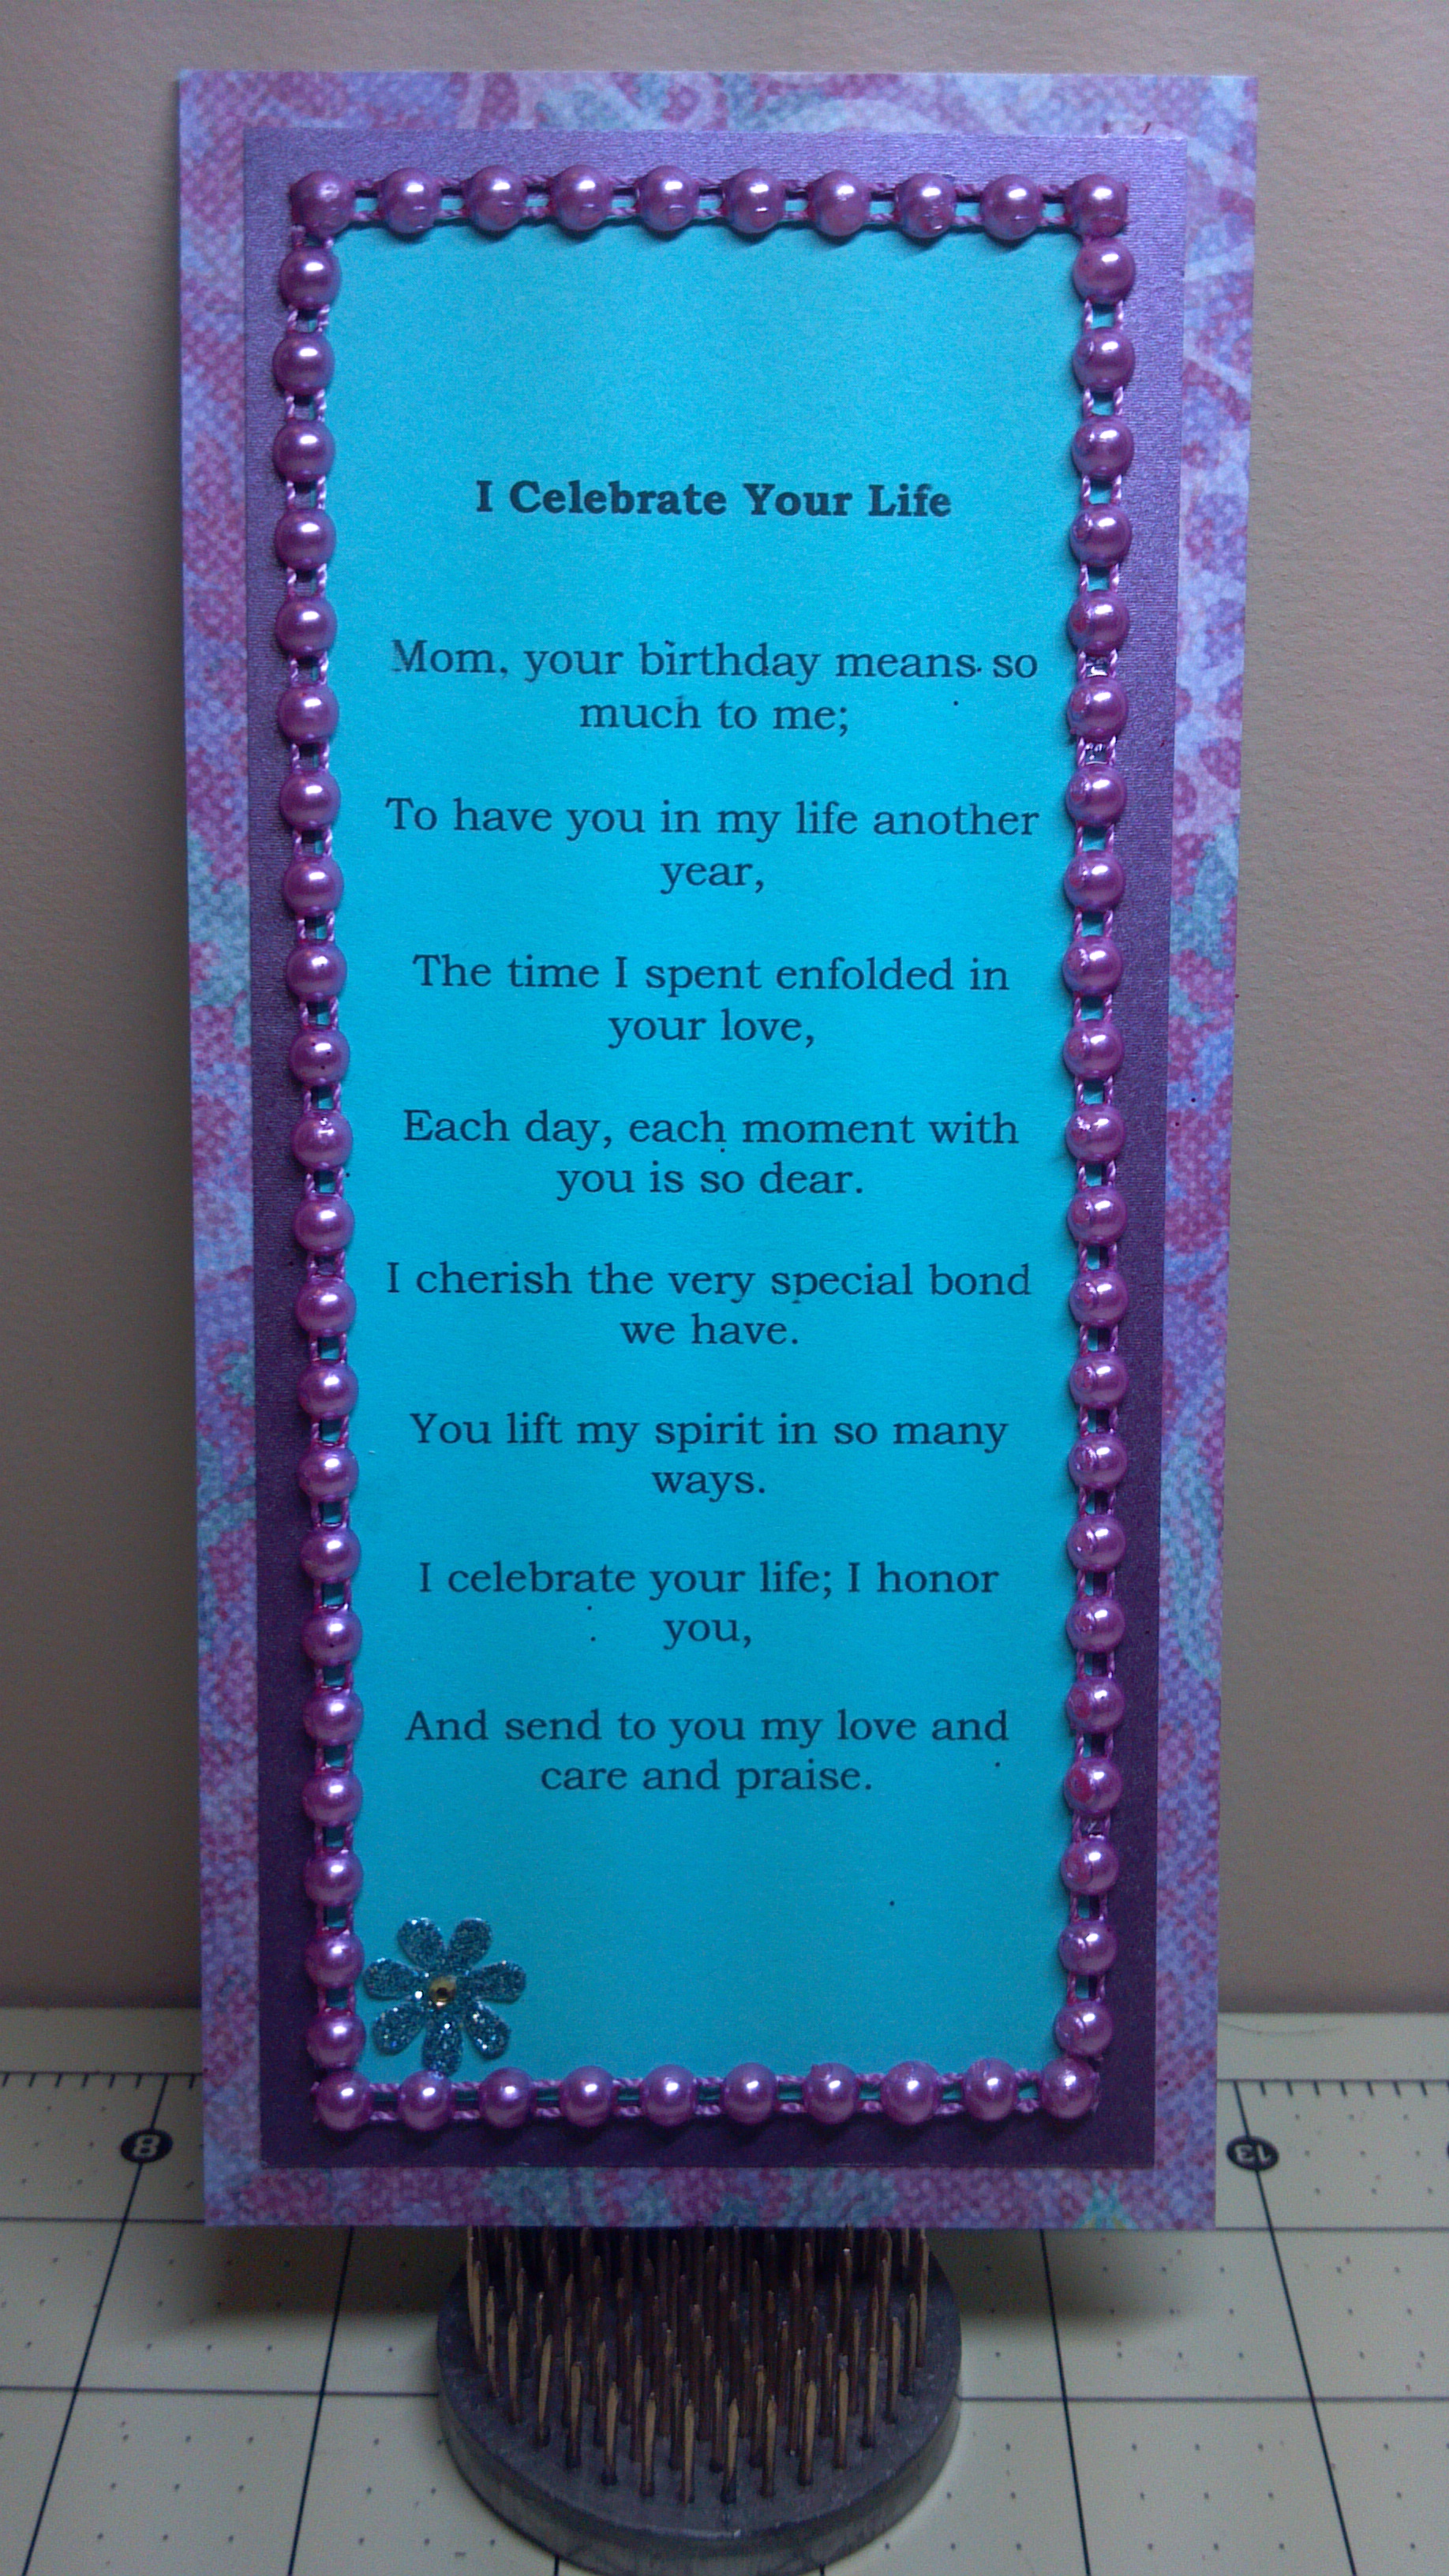 I Celebrate Your Life
Mom, your birthday means so
much to me;
To have you in my life another
year,
The time I spent enfolded in
your love,
Each day, each moment with
you is so dear.
I cherish the very special bond
we have.
You lift my spirit in so many
ways.
I celebrate your life; I honor
you,
And send to you my love and
care and praise.
8
13